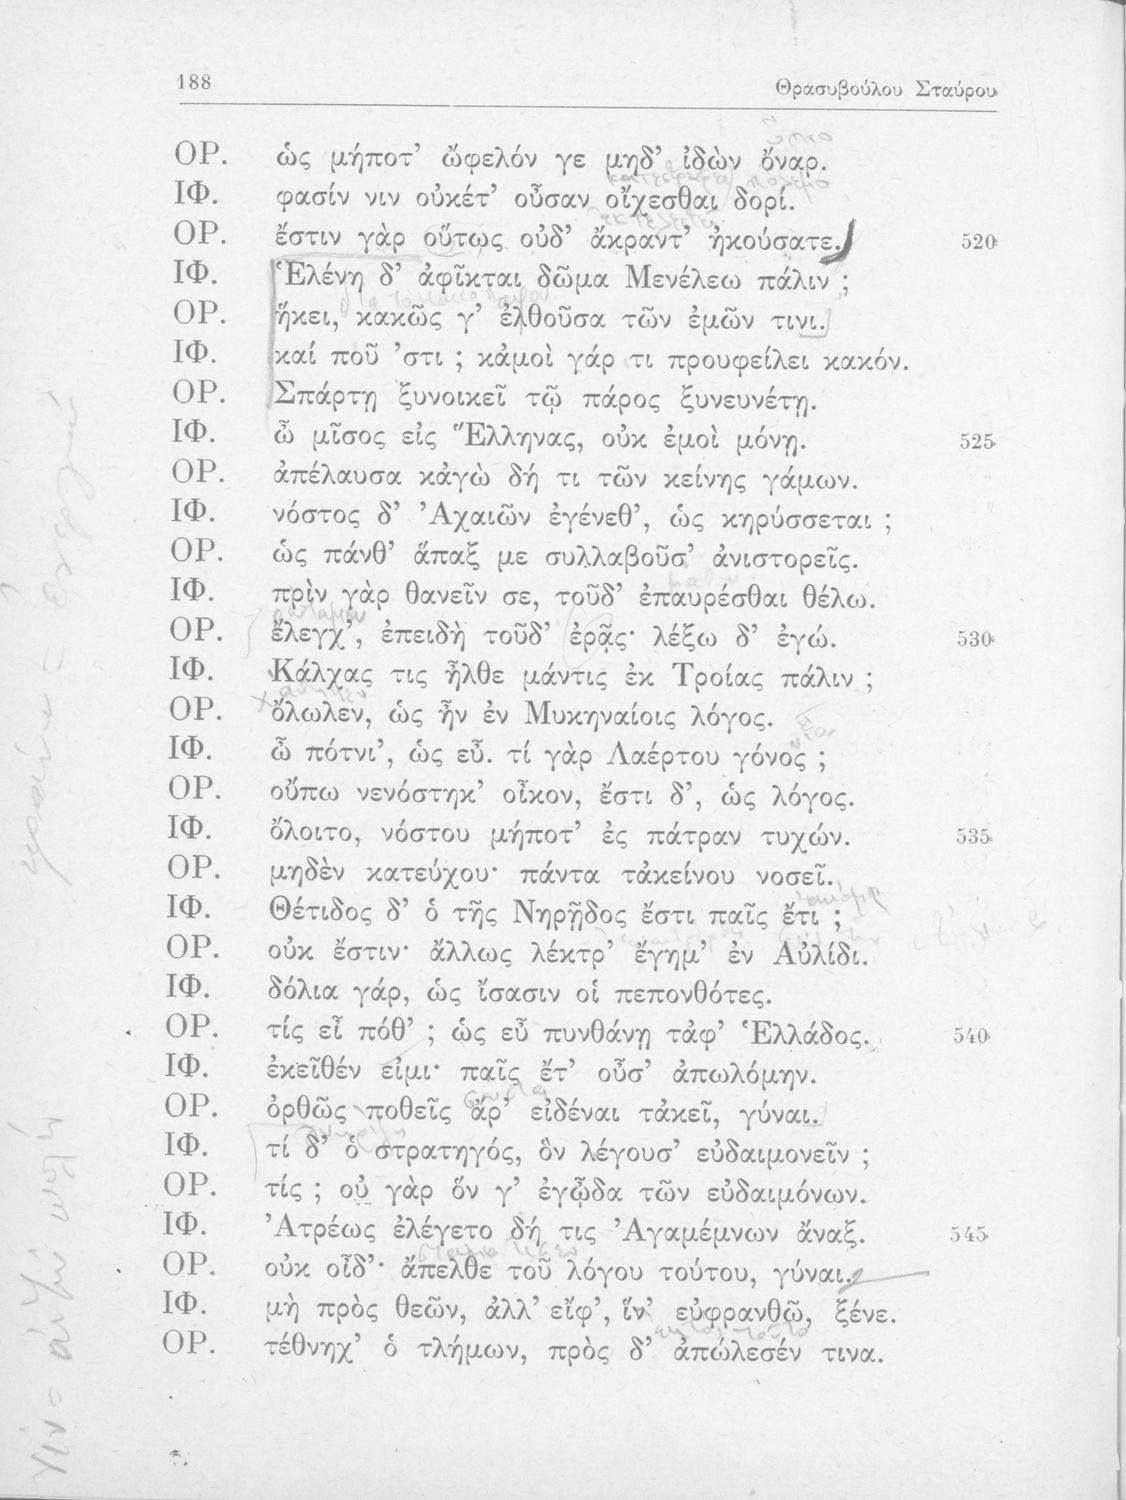 188 Θρασυβούλου Σταύρου
ΟΡ. ὡς μήποτ' ὤφελόν γε μηδ' ἰδὼν ὄναρ.
ΙΦ. φασίν νιν οὐκέτ' οὖσαν οἴχεσθαι δορί.
ΟΡ. ἔστιν γὰρ οὕτως οὐδ' ἄκραντ' ἠκούσατε. 520
ΙΦ. Ἑλένη δ' ἀφῖκται δῶμα Μενέλεω πάλιν ;
ΟΡ. ἥκει, κακῶς γ' ἐλθοῦσα τῶν ἐμῶν τινι.
ΙΦ. καί ποῦ 'στι ; κἀμοὶ γάρ τι προυφείλει κακόν.
ΟΡ. Σπάρτῃ ξυνοικεῖ τῷ πάρος ξυνευνέτῃ.
ΙΦ. ὦ μῖσος εἰς Ἕλληνας, οὐκ ἐμοὶ μόνῃ. 525
ΟΡ. ἀπέλαυσα κἀγὼ δή τι τῶν κείνης γάμων.
ΙΦ. νόστος δ' Ἀχαιῶν ἐγένεθ', ὡς κηρύσσεται ;
ΟΡ. ὡς πάνθ' ἅπαξ με συλλαβοῦσ' ἀνιστορεῖς.
ΙΦ. πρὶν γὰρ θανεῖν σε, τοῦδ' ἐπαυρέσθαι θέλω.
ΟΡ. ἔλεγχ', ἐπειδὴ τοῦδ' ἐρᾷς· λέξω δ' ἐγώ. 530
ΙΦ. Κάλχας τις ἦλθε μάντις ἐκ Τροίας πάλιν ;
ΟΡ. ὄλωλεν, ὡς ἦν ἐν Μυκηναίοις λόγος.
ΙΦ. ὦ πότνι', ὡς εὖ. τί γὰρ Λαέρτου γόνος ;
ΟΡ. οὔπω νενόστηκ' οἶκον, ἔστι δ', ὡς λόγος.
ΙΦ. ὄλοιτο, νόστου μήποτ' ἐς πάτραν τυχών. 535
ΟΡ. μηδὲν κατεύχου· πάντα τἀκείνου νοσεῖ.
ΙΦ. Θέτιδος δ' ὁ τῆς Νηρῇδος ἔστι παῖς ἔτι ;
ΟΡ. οὐκ ἔστιν· ἄλλως λέκτρ' ἔγημ' ἐν Αὐλίδι.
ΙΦ. δόλια γάρ, ὡς ἴσασιν οἱ πεπονθότες.
ΟΡ. τίς εἶ πόθ' ; ὡς εὖ πυνθάνῃ τἀφ' Ἑλλάδος. 540
ΙΦ. ἐκεῖθέν εἰμι· παῖς ἔτ' οὖσ' ἀπωλόμην.
ΟΡ. ὀρθῶς ποθεῖς ἄρ' εἰδέναι τἀκεῖ, γύναι.
ΙΦ. τί δ' ὁ στρατηγός, ὃν λέγουσ' εὐδαιμονεῖν ;
ΟΡ. τίς ; οὐ γὰρ ὅν γ' ἐγᾦδα τῶν εὐδαιμόνων.
ΙΦ. Ἀτρέως ἐλέγετο δή τις Ἀγαμέμνων ἄναξ. 545
ΟΡ. οὐκ οἶδ'· ἄπελθε τοῦ λόγου τούτου, γύναι.
ΙΦ. μὴ πρὸς θεῶν, ἀλλ' εἴφ', ἵν' εὐφρανθῶ, ξένε.
ΟΡ. τέθνηχ' ὁ τλήμων, πρὸς δ' ἀπώλεσέν τινα.